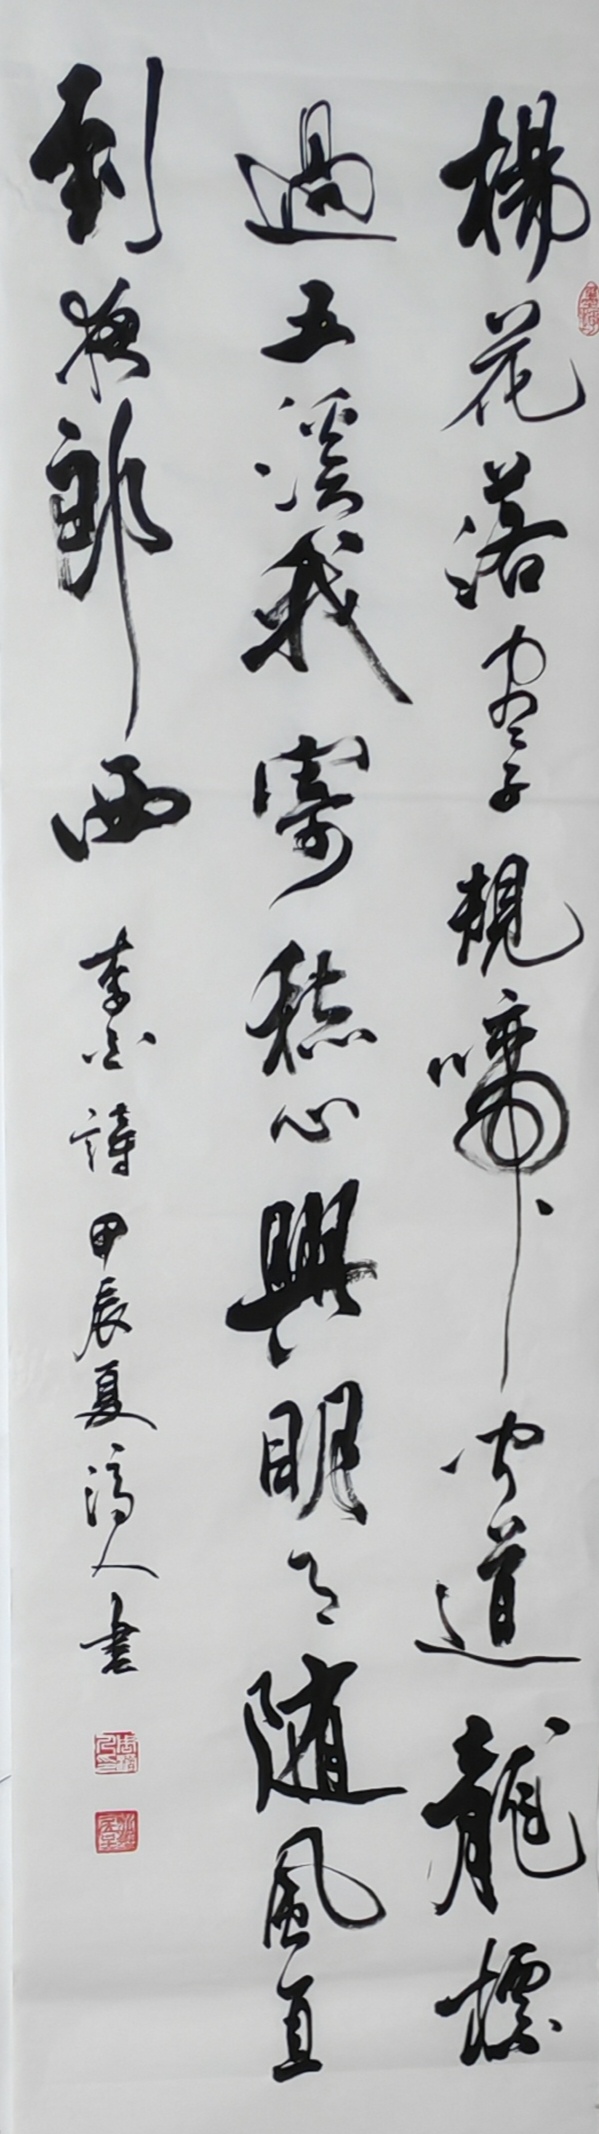 楊花落盡子規啼聞道龍標
過五溪我寄愁心與明月随風直
到夜郎西
李白詩甲辰夏人書